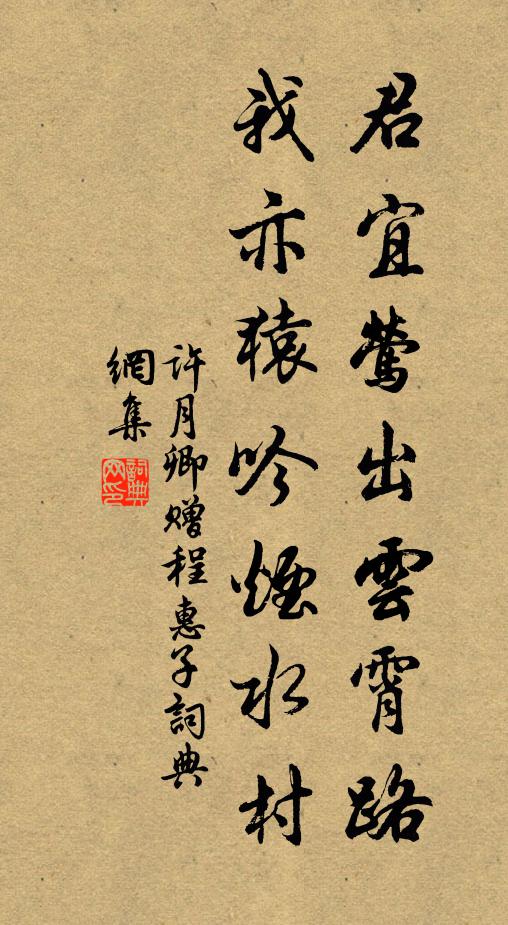 君宜鶯出雲霄路
我亦猿吟煙水村
許月卿贈程惠子詞典
網集
詞典
網印